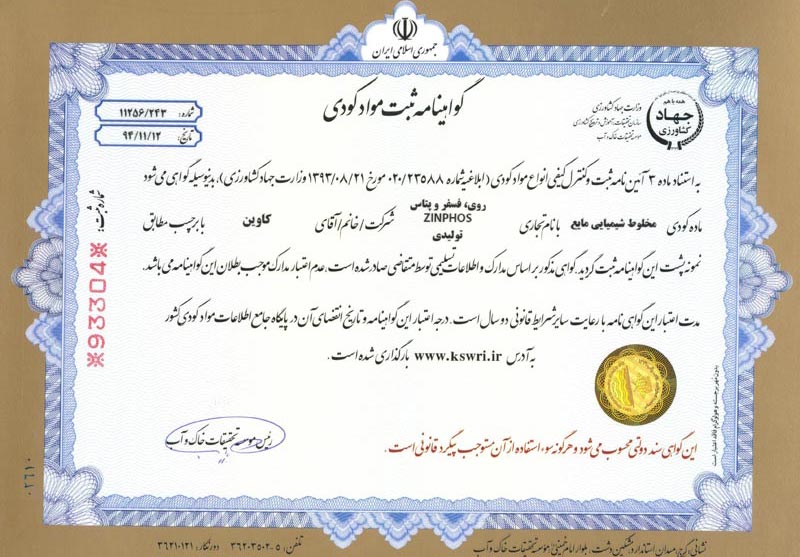 جمهوری اسلامی ایران
گواهینامه ثبت مواد کودی
شماره: ۱۱۲۵۶/۲۴۳
تاریخ: ۹۴/۱۱/۱۲
همه با هم
جهاد
کشاورزی
وزارت جهاد کشاورزی
سازمان تحقیقات، آموزش و ترویج کشاورزی
موسسه تحقیقات خاک و آب
به استناد ماده ۳ آئین نامه ثبت و کنترل کیفی انواع مواد کودی (ابلاغیه شماره ۰۲۰/۲۳۵۸۸ مورخ ۱۳۹۳/۰۸/۲۱ وزارت جهاد کشاورزی)، بدینوسیله گواهی می شود
ماده کودی مخلوط شیمیایی مایع با نام تجاری روی، فسفر و پتاس ZINPHOS تولیدی شرکت / خانم / آقای کاوین با برچسب مطابق
نمونه پشت این گواهینامه ثبت گردید. گواهی مذکور بر اساس مدارک و اطلاعات تسلیمی توسط متقاضی صادر شده است، عدم اعتبار مدارک موجب بطلان این گواهینامه می باشد.
مدت اعتبار این گواهی نامه با رعایت سایر شرایط قانونی دو سال است. درجه اعتبار این گواهینامه و تاریخ انقضای آن در پایگاه جامع اطلاعات مواد کودی کشور
به آدرس www.kswri.ir بارگذاری شده است.
رئیس موسسه تحقیقات خاک و آب
این گواهی سند دولتی محسوب می شود و هرگونه سوء استفاده از آن مستوجب پیگرد قانونی است.
شماره ثبت:
*93304*
بدون مهر برجسته و هولوگرام فاقد اعتبار است
۰۲۶۱۰
نشانی: کرج، میدان استاندارد، مشکین دشت، بلوار امام خمینی، موسسه تحقیقات خاک و آب
تلفن: ۵-۳۶۲۰۳۵۰۲ دورنگار: ۳۶۲۱۰۱۲۱